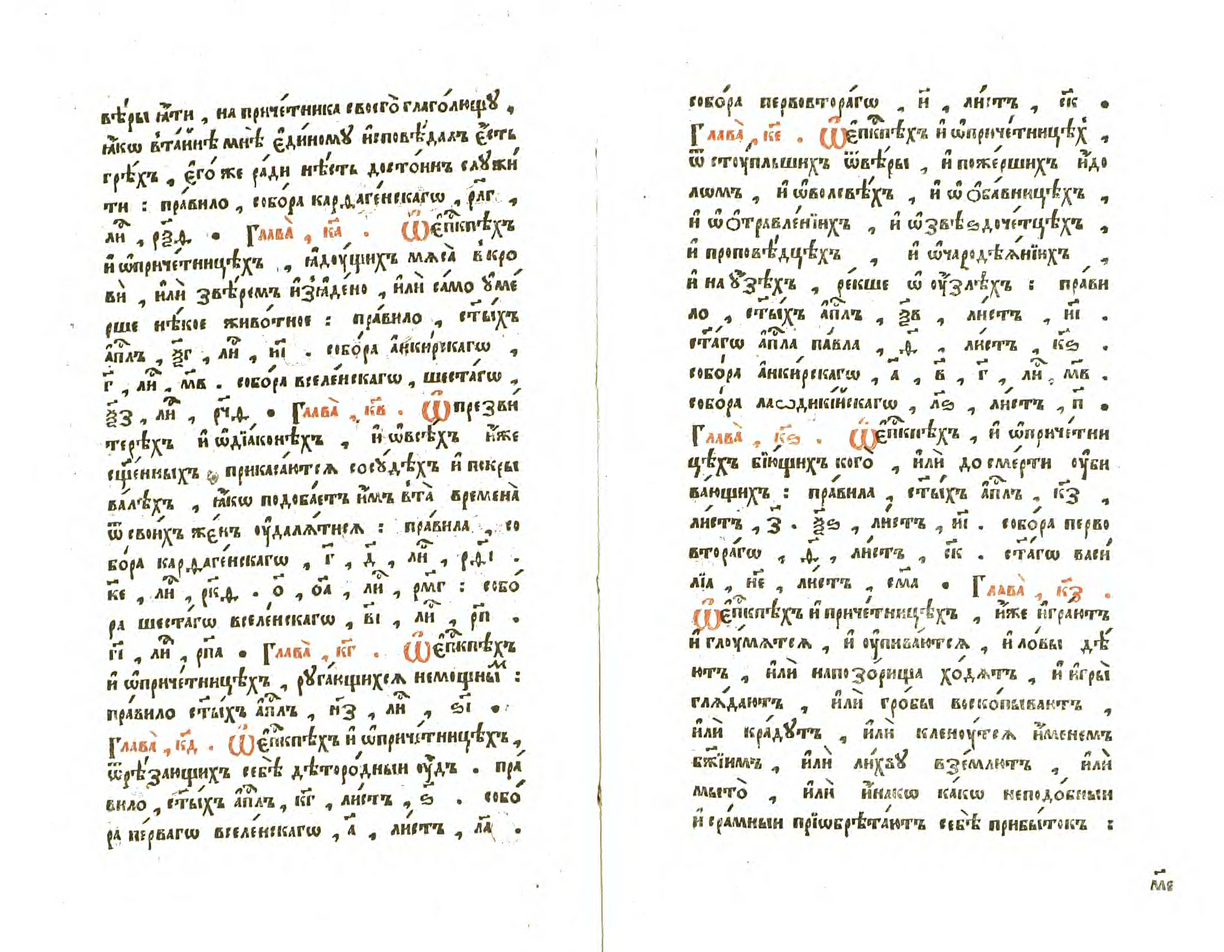 вѣ́ры ꙗ҆́ти , на причє́тника своєго̀ глаго́лющꙋ ,
ꙗ҆́кѡ в̾та́йнѣ мнѣ̀ є҆ди́номꙋ и҆сповѣ́далъ є҆́сть
грѣ́хъ , є҆гѡ́ же ра́ди нѣ́сть досто́инъ слꙋжи́
ти : пра́вило , собо́ра карѳаге́нскагѡ , рл҃г ,
лиⷭ҇ , рѯ҃ѳ . Глава̀ , к҃а . Ѡ҆ є҆пⷭ҇кпѣхъ
и҆ ѡ҆причє́тницѣхъ , ꙗ҆дꙋ́щихъ мѧса̀ в̾кро
вѝ , и҆лѝ звѣ́ремъ и҆з̾ꙗ́дено , и҆лѝ са́мо ᲂу҆ме́
рше нѣ́кое живо́тное : пра́вило , ст҃ы́хъ
а҆пⷭ҇лъ , ѯ҃г , лиⷭ҇ , и҃і . собо́ра а҆нки́рскагѡ ,
г҃ , лиⷭ҇ , м҃в . собо́ра вселе́нскагѡ , шеста́гѡ ,
ѯ҃з , лиⷭ҇ , рч҃ѳ . Глава̀ , к҃в . Ѡ҆ презви́
терѣхъ и҆ ѡ҆дїа́конѣхъ , и҆ ѡ҆всѣ́хъ и҆̀же
сщ҃е́нныхъ прикаса́ютсѧ сосꙋ́дѣхъ и҆ покры
ва́лѣхъ , ꙗ҆́кѡ подоба́етъ и҆̀мъ в̾та̀ времена̀
ѿ свои́хъ же́нъ ᲂу҆далѧ́тисѧ : пра́вила , со
бо́ра карѳаге́нскагѡ , г҃ , д҃ , лиⷭ҇ , рѳ҃і .
к҃є , лиⷭ҇ , рк҃ѳ . о҃ , о҃а , лиⷭ҇ , рм҃г : собо́
ра шеста́гѡ вселе́нскагѡ , в҃і , лиⷭ҇ , р҃п .
г҃і , лиⷭ҇ , рп҃а . Глава̀ , к҃г . Ѡ҆ є҆пⷭ҇кпѣхъ
и҆ ѡ҆причє́тницѣхъ , рꙋга́ющихсѧ немощны́ⷨ :
пра́вило ст҃ы́хъ а҆пⷭ҇лъ , н҃з , лиⷭ҇ , ѕ҃і .
Глава̀ , к҃д . Ѡ҆ є҆пⷭ҇кпѣхъ и҆ ѡ҆причє́тницѣхъ ,
ѿрѣ́зающихъ себѣ̀ дѣторо́дныи ᲂу҆́дъ . пра́
вило , ст҃ы́хъ а҆пⷭ҇лъ , к҃г , ли́стъ , ѕ҃ . собо́
ра пе́рвагѡ вселе́нскагѡ , а҃ , ли́стъ , л҃а .
собо́ра первовтора́гѡ , и҃ , ли́стъ , с҃к .
Глава̀ , к҃є . Ѡ҆ є҆пⷭ҇кпѣхъ и҆ ѡ҆причє́тницѣⷯ ,
ѿ стꙋ́пльшихъ ѿвѣ́ры , и҆ поже́ршихъ и҆́до
лѡмъ , и҆ ѡ҆волсвѣ́хъ , и҆ ѡ҆ ѻ҆ба́вницѣхъ ,
и҆ ѡ҆ ѻ҆травле́нїихъ , и҆ ѡ҆звѣѕдоче́тцѣхъ ,
и҆ проповѣ́дцѣхъ , и҆ ѡ҆чародѣѧ́нїихъ ,
и҆ на ᲂу҆́зѣхъ , ре́кше ѡ҆ ᲂу҆́злѣхъ : пра́ви
ло , ст҃ы́хъ а҆пⷭ҇лъ , ѯ҃в , ли́стъ , и҃і .
ст҃а́гѡ а҆пⷭ҇ла па́вла , ѳ҃ , ли́стъ , к҃ѕ .
собо́ра а҆нки́рскагѡ , а҃ , в҃ , г҃ , лиⷭ҇ , м҃в .
собо́ра лаѡдикі́йскагѡ , л҃ѕ , ли́стъ , п҃ .
Глава̀ , к҃ѕ . Ѡ҆ є҆пⷭ҇кпѣхъ , и҆ ѡ҆причє́тни
цѣхъ бїю́щихъ кого̀ , и҆лѝ до сме́рти ᲂу҆би
ва́ющихъ : пра́вила , ст҃ы́хъ а҆пⷭ҇лъ , к҃з ,
ли́стъ , з҃ . ѯ҃ѕ , ли́стъ , и҃і . собо́ра перво
втора́гѡ , ѳ҃ , ли́стъ , с҃к . ст҃а́гѡ васи́
лїа , н҃є , ли́стъ , см҃а . Глава̀ , к҃з .
Ѡ҆ є҆пⷭ҇кпѣхъ и҆ причє́тницѣхъ , и҆̀же и҆гра́ютъ
и҆ глꙋмѧ́тсѧ , и҆ ᲂу҆пива́ютсѧ , и҆ ло́вы дѣ́
ютъ , и҆лѝ напозо́рища хо́дѧтъ , и҆ и҆гры̀
глѧ́даютъ , и҆лѝ гро́бы воскопыва́ютъ ,
и҆лѝ кра́дꙋтъ , и҆лѝ кленꙋ́тсѧ и҆́менемъ
бж҃їимъ , и҆лѝ ли́хвꙋ взе́млютъ , и҆лѝ
мыто̀ , и҆лѝ и҆на́кѡ ка́кѡ неподо́бныи
и҆ сра́мныи прїѡбрѣта́ютъ себѣ̀ прибы́токъ :
м҃є